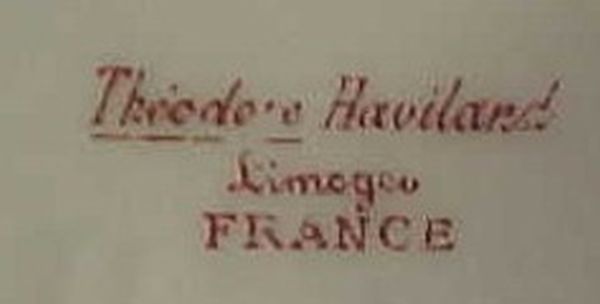 Théodore Haviland
Limoges
FRANCE